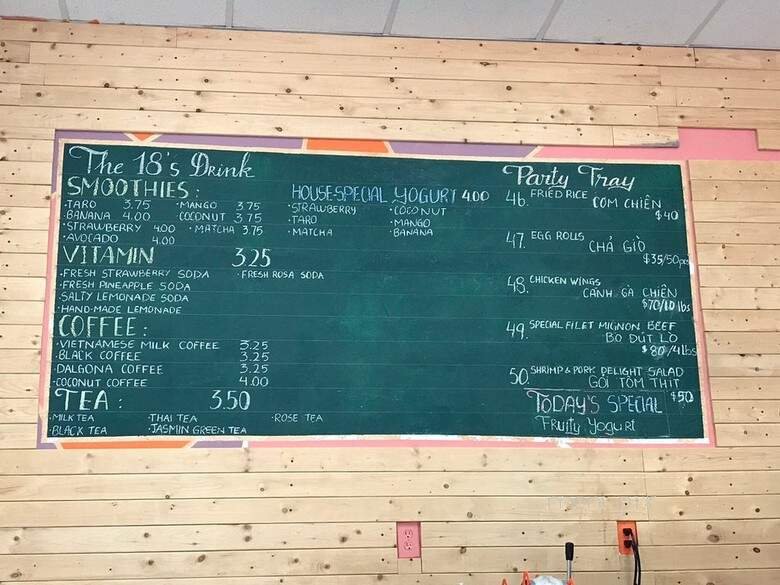 The 18's Drink
SMOOTHIES:
·TARO 3.75 ·MANGO 3.75
·BANANA 4.00 ·COCONUT 3.75
·STRAWBERRY 4.00 ·MATCHA 3.75
·AVOCADO 4.00
VITAMIN 3.25
·FRESH STRAWBERRY SODA ·FRESH ROSA SODA
·FRESH PINEAPPLE SODA
·SALTY LEMONADE SODA
·HAND-MADE LEMONADE
COFFEE:
·VIETNAMESE MILK COFFEE 3.25
·BLACK COFFEE 3.25
·DALGONA COFFEE 3.25
·COCONUT COFFEE 4.00
TEA: 3.50
·MILK TEA ·THAI TEA ·ROSE TEA
·BLACK TEA ·JASMIN GREEN TEA
HOUSE-SPECIAL YOGURT 4.00
·STRAWBERRY ·COCONUT
·TARO ·MANGO
·MATCHA ·BANANA
Party Tray
46. FRIED RICE CƠM CHIÊN
$40
47. EGG ROLLS
CHẢ GIÒ
$35/50pcs
48. CHICKEN WINGS
CÁNH GÀ CHIÊN
$70/10lbs
49. SPECIAL FILET MIGNON BEEF
BÒ ĐÚT LÒ
$80/4lbs
50. SHRIMP & PORK DELIGHT SALAD
GỎI TÔM THỊT
$50
TODAY'S SPECIAL
Fruity Yogurt